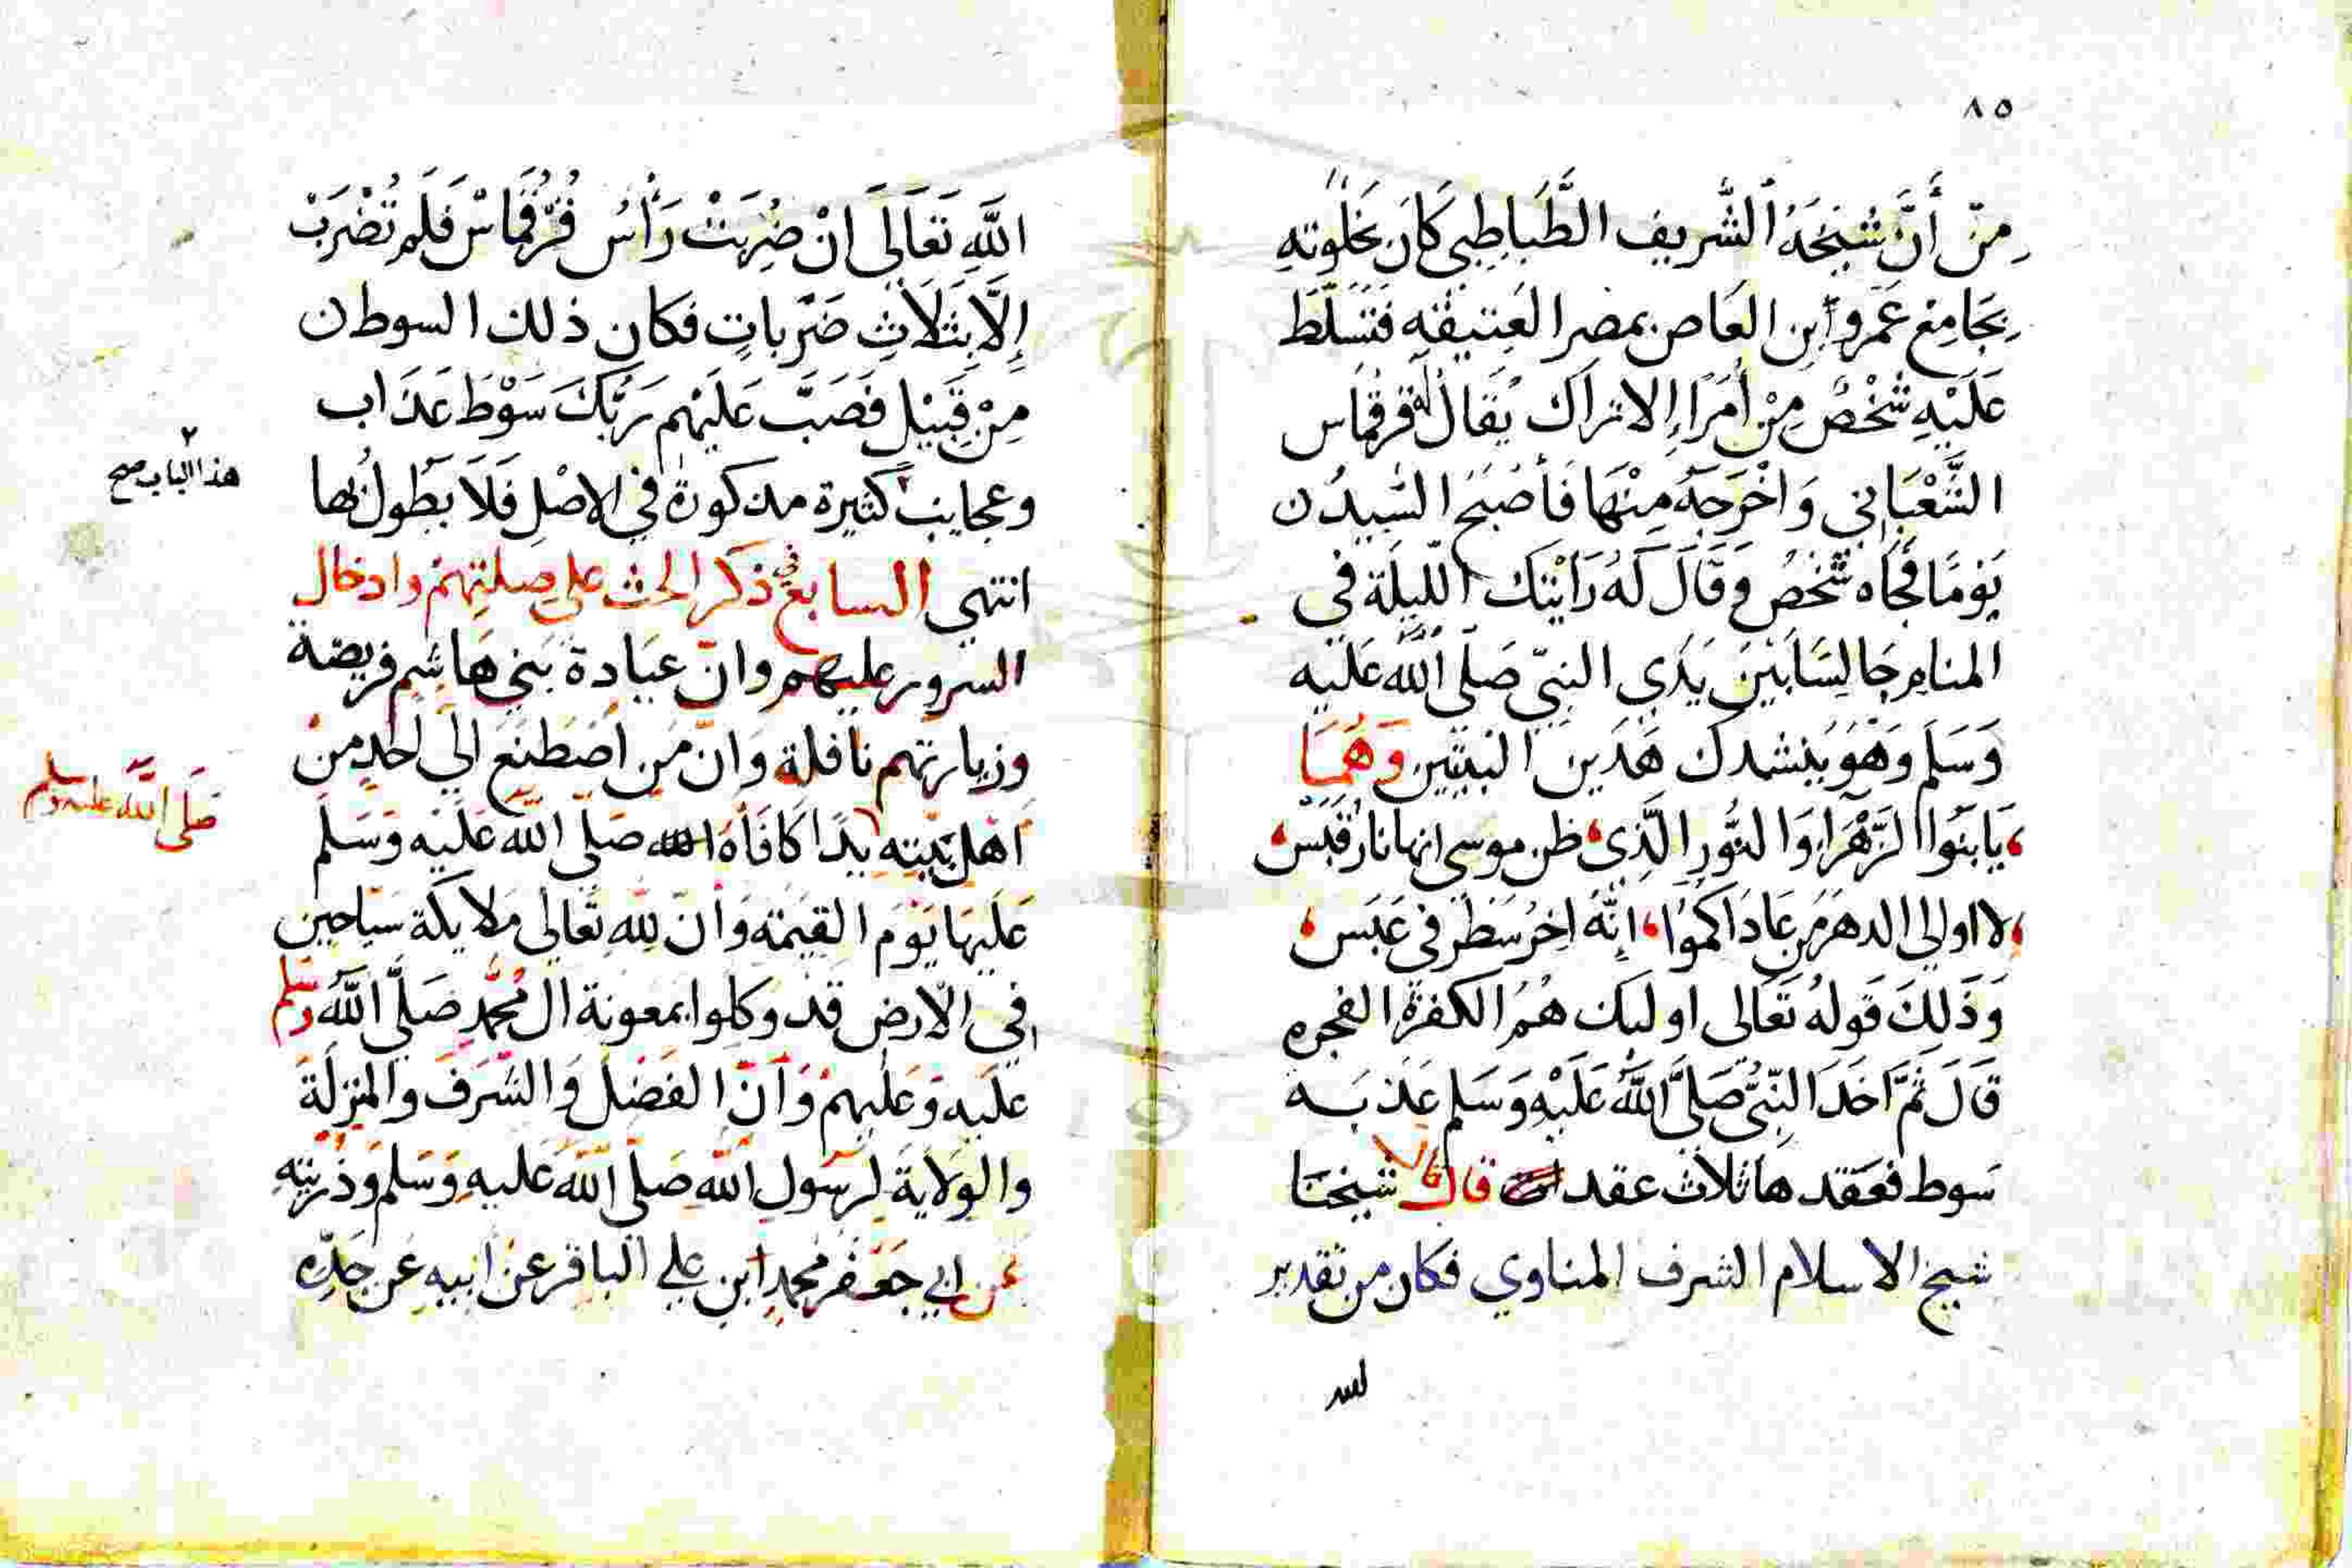 ٨٥
مِنْ أَنَّ شَيْخَهُ الشَّرِيف الطَّبَاطِبِي كَانَ بخَلْوتِهِ
بِجَامِعْ عَمرو ابن العَاص بمصر العَتِيقَه فَتَسَلَّطَ
عَلَيْهِ شَخْصٌ مِنْ أُمَرَاءِ الاتراك يُقَالُ لَهُ قرقماس
الشَّعْبَانِي وَاخْرَجَهُ مِنْهَا فَأَصْبَحَ السَّيدُ
يَومًا فَجَاه شَخْصٌ وَقَالَ لَهُ رَأيْتك اللَّيلَة فى
المنام جَالِسًا بَيْنَ يَدَي النبيّ صَلَّى اللَّه عَلَيْه
وَسَلم وَهْوَ يُنشدك هَذَين البيتين وَهُمَا
يَا بَنُوا الزَّهْرَا وَالنُّورِ الَّذِي ظن موسى انها نَارُ قَبَسْ
لا اوالي الدهرَ مَن عَادَاكمُوا اِنَّهُ اخِرُ سَطْرٍ فى عَبَس
وَذَلِكَ قَولهُ تَعَالى اوليك هُمُ الكفرة الفجره
قَالَ ثُمَّ اَخَذَ النَّبِيُّ صَلَّى اللَّهُ عَلَيْهِ وَسَلم عَذبَه
سَوط فعَقدها ثلاث عقد قال شيخنا
شيخ الاسلام الشرف المناوي فكان من تقدير
الله
اللَّهِ تَعَالَى انْ ضُرِبَتْ رَأسُ قُرْقُمَاسْ فَلَم تُضْرَبْ
إِلَّا بِثَلَاثِ ضَرْبَاتٍ فكان ذلك السوط
مِنْ قَبِيْل فَصَبَّ عَلَيْهم رَبُّكَ سَوْطَ عَذَاب
وعجايب كَثيرة مذكورة في الاصْلِ فَلَا يَطُولُ بها
انتهى السابع في ذكر الحث على صِلتِهمْ وادخال
السرور عليهم وان عيَادة بَني هَاشِم فريضة
وزيارتهم نافلة وَانّ مَن اصْطَنَعَ الَى احَدٍ منْ
اهل بَيته يدًا كافَأهُ الله صَلى اللهُ عَلَيْه وَسَلم
عَلَيهَا يَومَ القيمَة وَأنّ لِله تَعَالى مَلايكَة سَيَّاحين
في الأرض قَد وكلوا بمعونة ال مُحَّمدٍ صَلَّى اللَّهُ وسلم
عليه وَعَليهمْ وَأنّ الفَضلَ وَالشَّرَفَ والمنزلَة
والوَلايَةَ لِرسُولِ اللهِ صَلى اللهُ عَليهِ وَسَلم وَذريتِه
عن ابي جَعْفر مُحمدِ ابن علي الباقر عن ابيه عَن جَدِّه
هذا الباب صح
صَلى اللَّه عليه وسلم